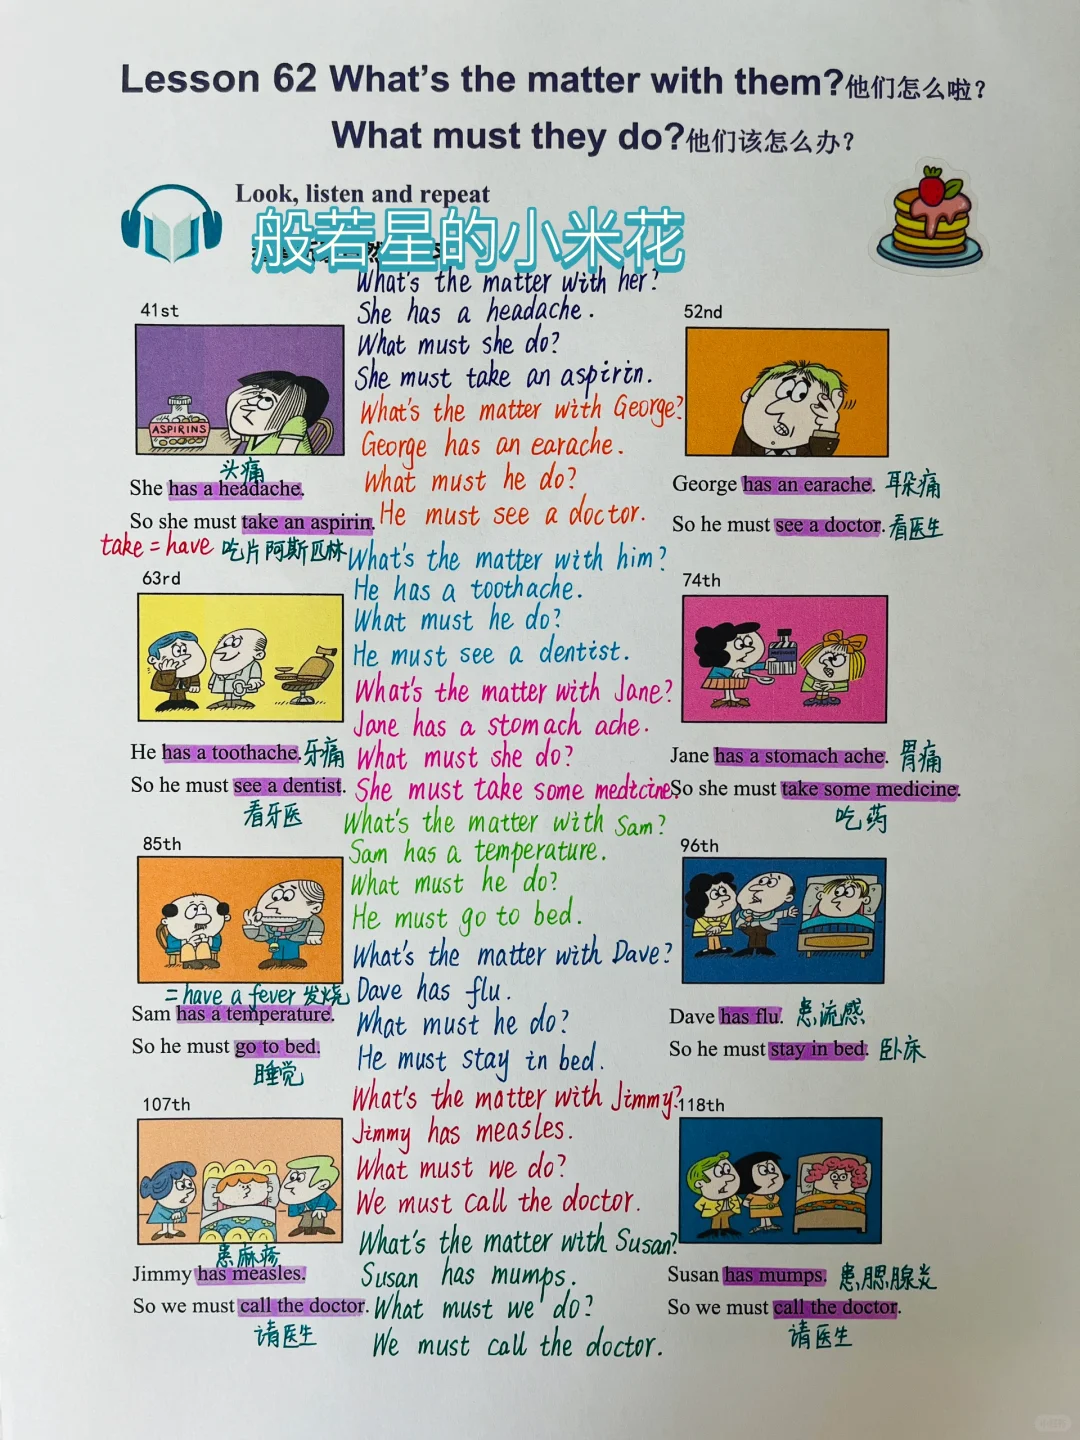 Lesson 62 What's the matter with them?他们怎么啦?
What must they do?他们该怎么办?
Look, listen and repeat
般若星的小米花
What's the matter with her?
She has a headache.
What must she do?
She must take an aspirin.
What's the matter with George?
George has an earache.
What must he do?
He must see a doctor.
What's the matter with him?
He has a toothache.
What must he do?
He must see a dentist.
What's the matter with Jane?
Jane has a stomach ache.
What must she do?
She must take some medicine.
What's the matter with Sam?
Sam has a temperature.
What must he do?
He must go to bed.
What's the matter with Dave?
Dave has flu.
What must he do?
He must stay in bed.
What's the matter with Jimmy?
Jimmy has measles.
What must we do?
We must call the doctor.
What's the matter with Susan?
Susan has mumps.
What must we do?
We must call the doctor.
41st
ASPIRINS
头痛
She has a headache.
So she must take an aspirin.
take = have 吃片阿斯匹林
52nd
George has an earache. 耳朵痛
So he must see a doctor. 看医生
63rd
He has a toothache. 牙痛
So he must see a dentist.
看牙医
74th
Jane has a stomach ache. 胃痛
So she must take some medicine.
吃药
85th
= have a fever 发烧
Sam has a temperature.
So he must go to bed.
睡觉
96th
Dave has flu. 患流感
So he must stay in bed. 卧床
107th
患麻疹
Jimmy has measles.
So we must call the doctor.
请医生
118th
Susan has mumps. 患腮腺炎
So we must call the doctor.
请医生